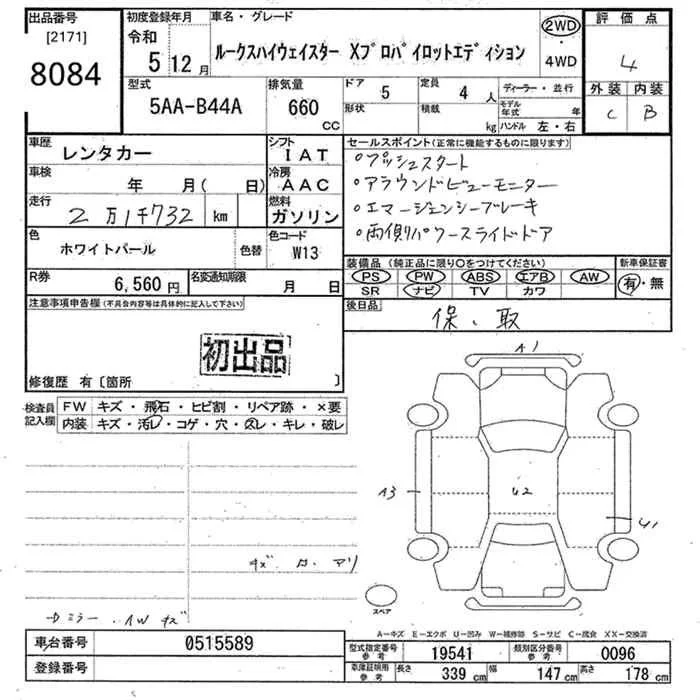 出品番号
[2171]
8084
初度登録年月
令和
5 12月
車名・グレード
ルークスハイウェイスター Xプロパイロットエディション
2WD
・
4WD
評価点
4
外装 内装
C B
型式
5AA-B44A
排気量
660
CC
ドア
5
形状
定員
4 人
積載
kg
ディーラー・並行
モデル年式 年
ハンドル 左・右
車歴
レンタカー
シフト
IAT
車検
年 月( 日)
冷房
AAC
走行
2万1千732 km
燃料
ガソリン
色
ホワイトパール
色替
色コード
W13
R券
6,560円
名変通知期限
月 日
セールスポイント(正常に機能するものに限ります)
○プッシュスタート
○アラウンドビューモニター
○エマージェンシーブレーキ
○両側パワースライドドア
装備品(純正品に限り○をつけてください)
PS PW ABS エアB AW
SR ナビ TV カワ
新車保証書
有・無
後日品
保、取
注意事項申告欄(不具合内容等は具体的に記入して下さい)
初出品
修復歴 有〔箇所 〕
検査員記入欄
FW キズ・飛石・ヒビ割・リペア跡・×要
内装 キズ・汚レ・コゲ・穴・スレ・キレ・破レ
A1
A3
U2
U1
キズ
スペア
ミラー、AWキズ
A-キズ E-エクボ U-凹み W-補修跡 S-サビ C-腐食 XX-交換済
車台番号
0515589
登録番号
型式指定番号
参考
19541
類別区分番号
参考
0096
車庫証明用
参考
長さ
339 cm
幅
147 cm
高さ
178 cm